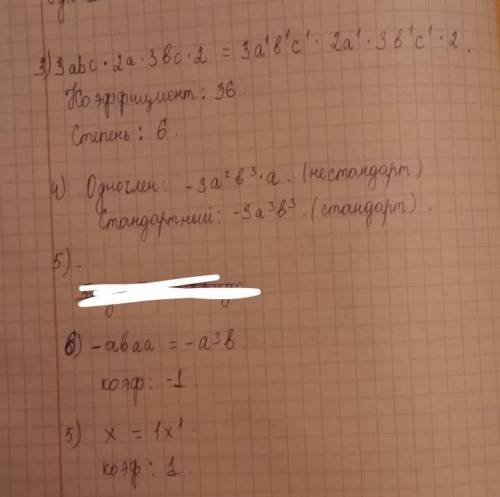 3) 3abc · 2a · 3bc · 2 = 3a¹b¹c¹ · 2a¹ · 3b¹c¹ · 2.
Коэффициент: 36.
Степень: 6.
4) Одночлен: -3a²b³·a. (нестандарт)
Стандартный: -3a³b³. (стандарт).
5).
6) -abaa = -a³b.
коэф: -1.
5) x = 1x¹.
коэф: 1.